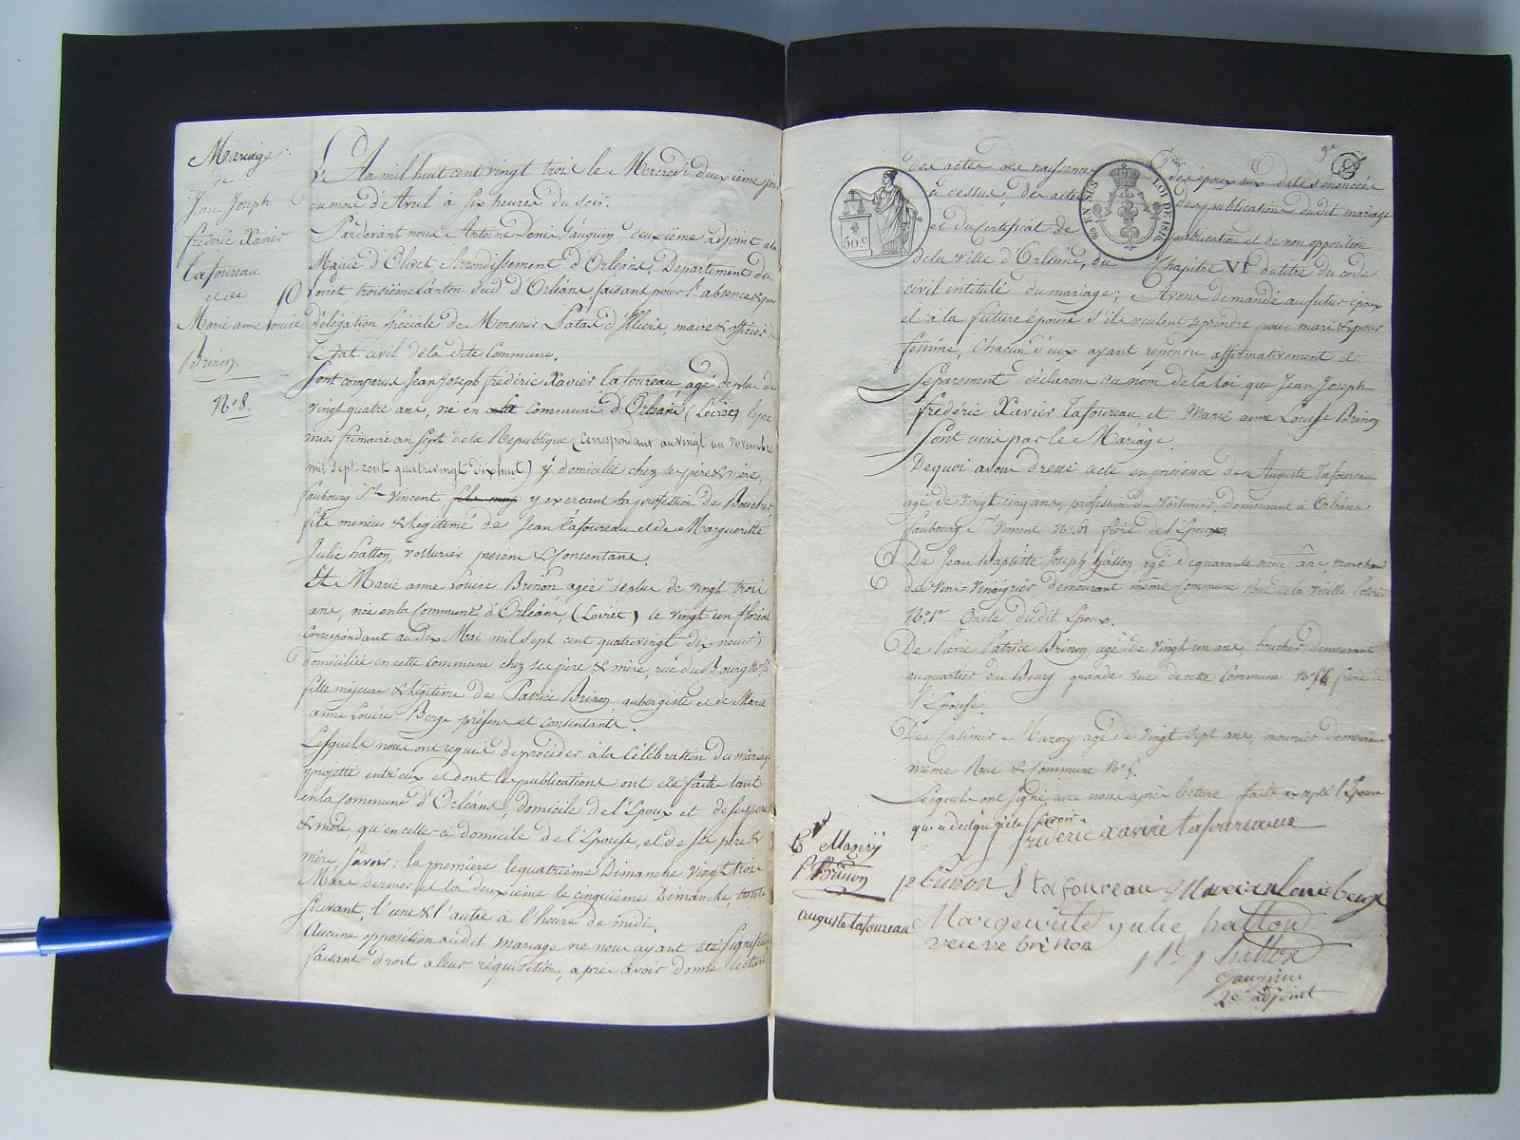 Mariage
de
Jean Joseph
frédéric Xavier
Lafoureau
et de
Marie anne Louise
Brinon
N° 8.
L'An mil huit cent vingt trois le Mercredi deuxième jour
du mois d'Avril à six heures du soir.
Pardevant nous Antoine Denis Gauguin deuxième adjoint
Mairie d'Olivet Arrondissement d'Orléans, Département du
Loiret troisième Canton Sud d'Orléans faisant pour l'absence & par
délégation spéciale de Monsieur Patas d'Illiers, maire & officier
l'Etat civil de la dite Commune.
Sont comparus Jean Joseph frédéric Xavier Lafoureau agé de plus de
vingt quatre ans, né en commune d'Orléans (Loiret) le
frimaire an Sept de la République (correspondant au vingt un novembre
mil sept cent quatrevingt dix huit) y domicilié chez ses père & mère,
faubourg St Vincent y exercant la profession de Boucher
fils mineur & légitime de Jean Lafoureau et de Marguerite
Julie hatton, voituriers présens & Consentans.
Et Marie anne Louise Brinon agée de plus de vingt trois
ans, née en la Commune d'Orléans, (Loiret) le vingt un floréal
Correspondant au dix Mai mil sept cent quatrevingt dix neuf
domiciliée en cette commune chez ses père & mère, rue du Bourg N°
fille majeure & légitime de Patrice Brinon aubergiste et de Marie
anne Louise Berge présens et consentants.
Lesquels nous ont requis de procéder à la Célébration du mariage
projetté entr'eux et dont les publications ont été faites tant
en la Commune d'Orléans, domicile de l'Epoux et de ses père
& mère, qu'en celle-ci domicile de l'Epouse, et de ses père &
mère, Savoir: la première le quatrième Dimanche vingt trois
Mars dernier et la deuxième le cinquième Dimanche, trente
suivant, l'une & l'autre à l'heure de midi.
Aucune opposition audit mariage ne nous ayant été signifiée
faisant droit à leur réquisition, après avoir donné lecture
9e
des actes de naissance des époux aux dates énoncées
ci dessus, des actes des publications dudit mariage
et du Certificat de publication et de non opposition
de la ville d'Orléans, du Chapitre VI du titre du code
50 C
EN SUS
LOI DE 1816
civil intitulé du mariage; Avons demandé au futur époux
et à la future épouse s'ils veulent se prendre pour mari & pour
femme, Chacun d'eux ayant répondu affirmativement et
Séparement déclarons au nom de la loi que Jean Joseph
frédéric Xavier Lafoureau et Marie anne Louise Brinon
Sont unis par le Mariage.
De quoi avons dressé acte en présence de Auguste Lafoureau
agé de vingt cinq ans, profession de voiturier, demeurant à Orléans
faubourg St Vincent N° 61 frère de l'Epoux
De Jean Baptiste Joseph hatton agé de quarante neuf ans, marchand
de Vin Vinaigrier demeurant même Commune rue de la Vieille
N° 1er Oncle dudit Epoux.
De Pierre Patrice Brinon agé de vingt un ans, boucher demeurant
au quartier du Bourg grande rue de cette Commune N° 56 frère de
l'Epouse.
De Casimir Marois agé de vingt sept ans, meunier demeurant
même Rue & Commune N°
Lesquels ont signé avec nous après lecture faite excepté l'Epouse
qui a déclaré ne le savoir.
frédéric xavier Lafoureau
P Brinon
p Brinon J Lafoureau Marie ane Louise berge
auguste lafoureau
Marguerite julie hatton
veuve brinon
hatton
Gauguin
2e adjoint